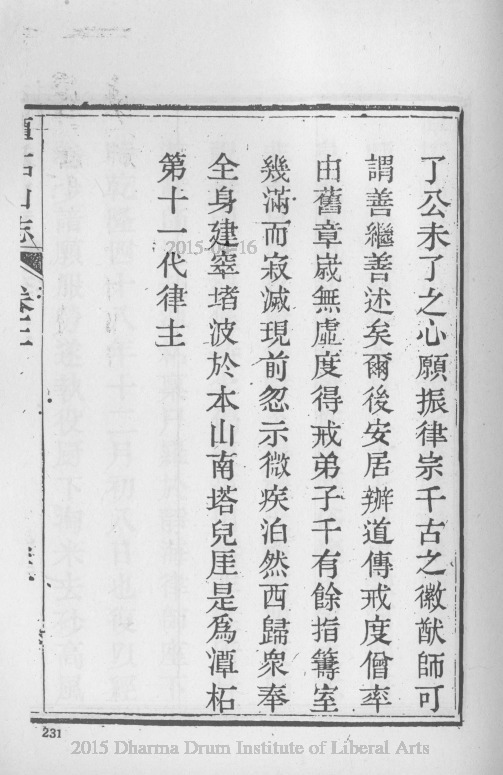 了公未了之心願振律宗千古之徽猷師可
謂善繼善述矣爾後安居辦道傳戒度僧率
由舊章嵗無虛度得戒弟子千有餘指籌室
幾滿而寂滅現前忽示微疾泊然西歸衆奉
全身建窣堵波於本山南塔兒厓是爲潭柘
第十一代律主
山志
卷二
231
2015 Dharma Drum Institute of Liberal Arts